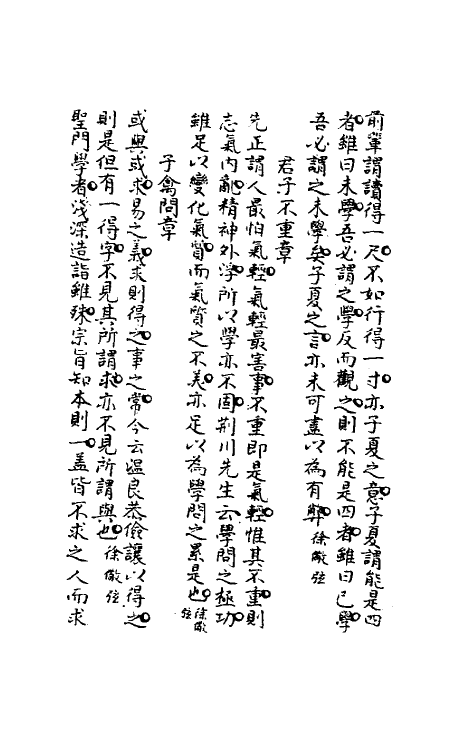 前輩謂讀得一尺不如行得一寸亦子夏之意子夏謂能是四
者雖曰未學吾必謂之學反而觀之則不能是四者雖曰已學
吾必謂之未學矣子夏之言亦未可盡以為有弊徐儆弦
君子不重章
先正謂人最怕氣輕氣輕最害事不重即是氣輕惟其不重則
志氣內亂精神外浮所以學亦不固荆川先生云學問之極功
雖足以變化氣質而氣質之不美亦足以為學問之累是也徐儆弦
子禽問章
或與或求易之義求則得之事之常今云溫良恭儉讓以得之
則是但有一得字不見其所謂求亦不見所謂與也徐儆弦
聖門學者淺深造詣雖殊宗旨知本則一蓋皆不求之人而求